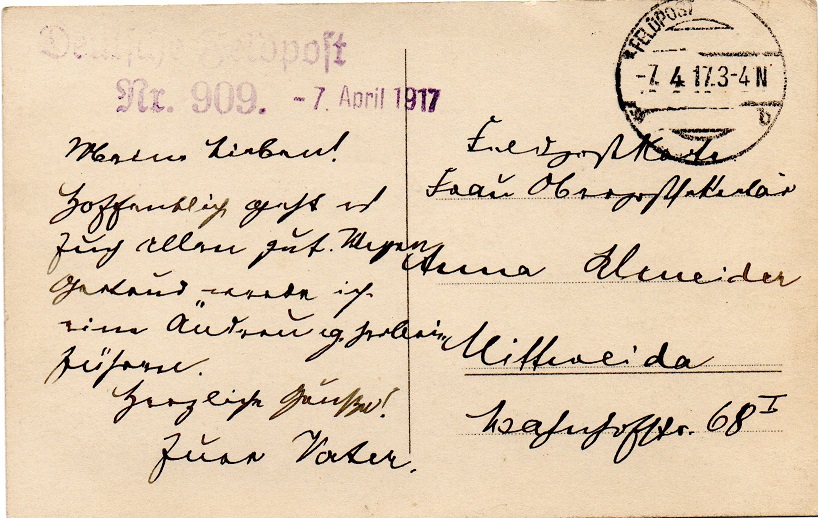 Deutsche Feldpost
Nr. 909. -7. April 1917
FELDPOST
-7. 4 17.3-4 N
b
Meine Lieben!
Hoffentlich geht es
Euch allen gut. Wegen
Gertrud werde ich
eine Änderung herbei
führen.
Herzliche Grüße!
Euer Vater.
Feldpostkarte
Frau Oberpostsekretär
Anna
Mittweida
Bahnhofstr. 68 I